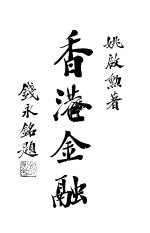 姚啟勳著
香港金融
錢永銘題